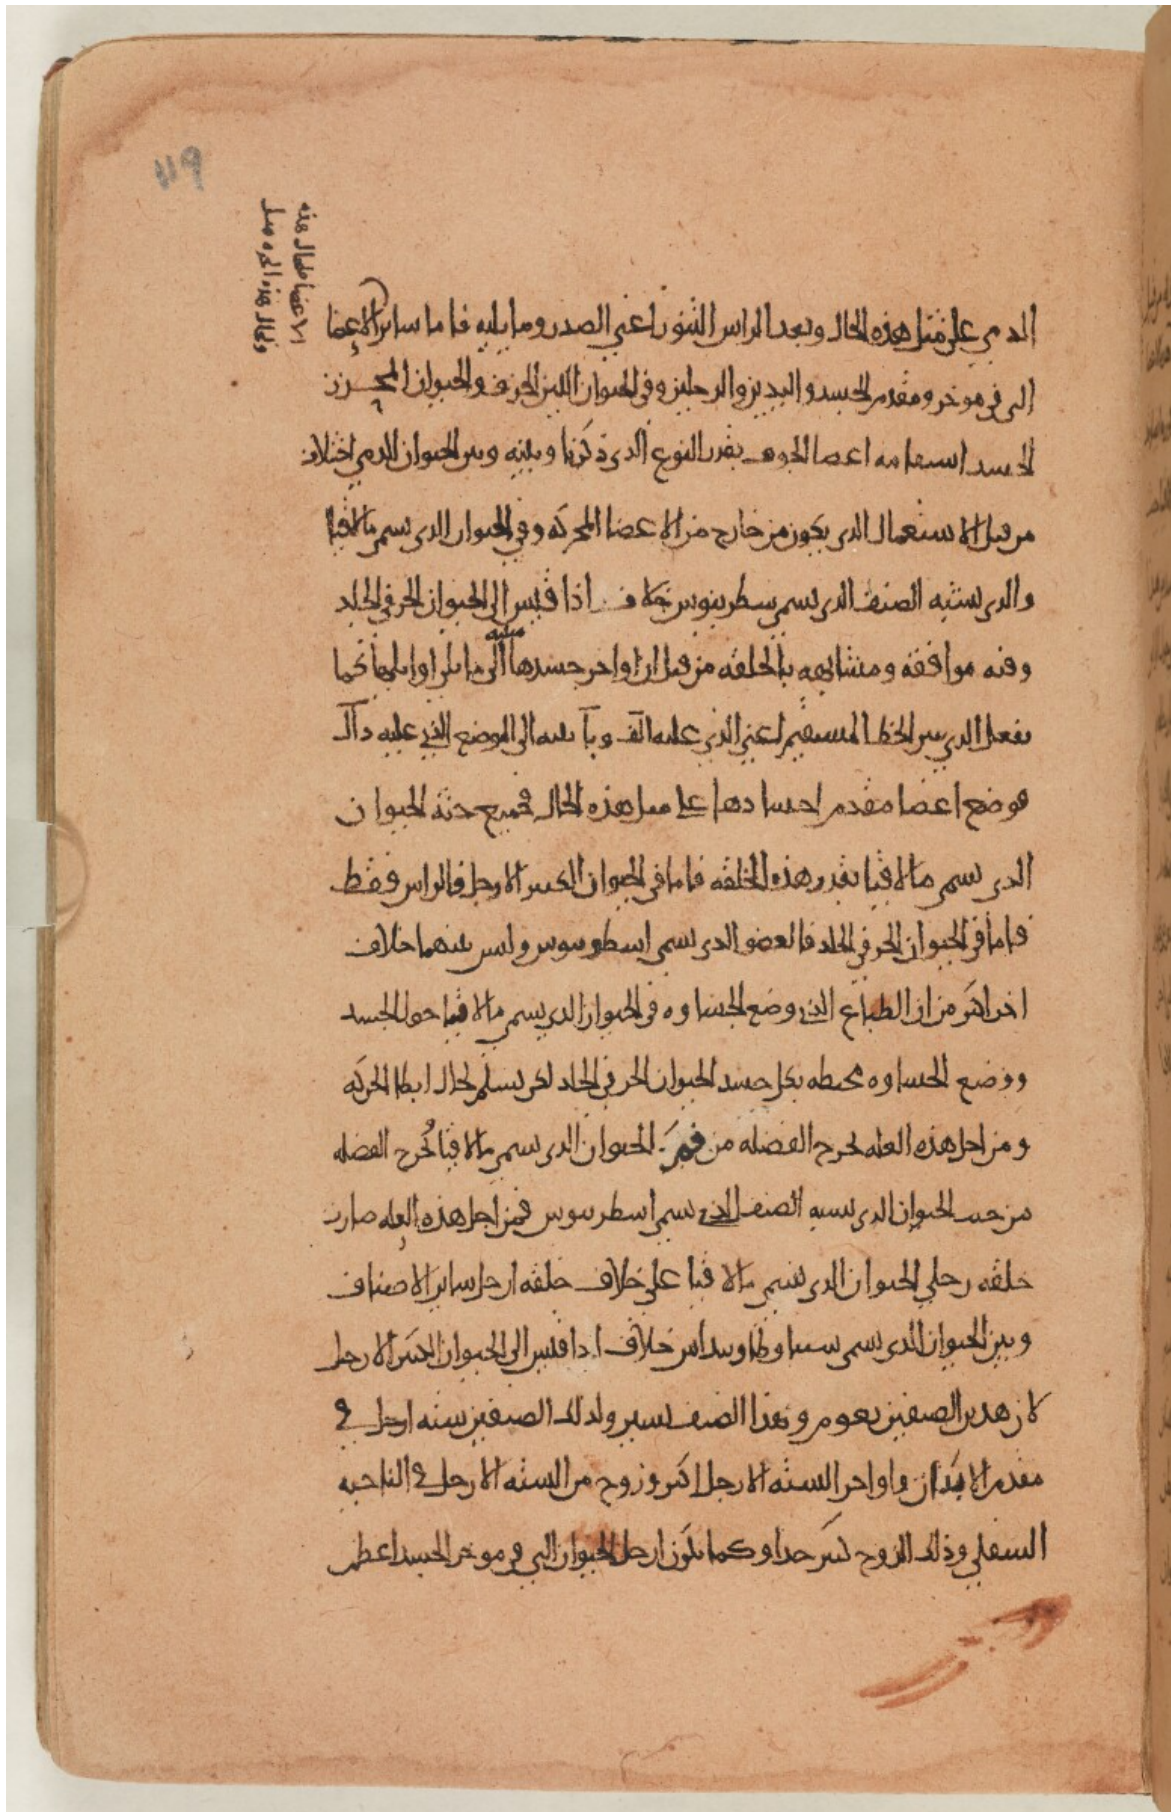 ١١٩
الاعضا فلحال هذه
الدمي على مثل هذه الحال وبعد الراس التنور اعني الصدر وما يليه فاما ساير الاعضا
التي في موخر ومقدم الجسد واليدين والرجلين وفي الحيوان اللين الخزف والحيوان المحزز
الجسد اعضا الجوف بقدر النوع الذي ذكرنا وبينه وبين الحيوان الدمي اختلاف
من قبل الاستعمال الذي يكون من خارج من الاعضا المحركة وفي الحيوان الذي يسمى مالاقيا
والذي يشبه الصنف الذي يسمى سطربنوس خلاف اذا قيس الى الحيوان الخزفي الجلد
وفيه موافقة ومشابهة بالخلقة من قبل ان اواخر جسدها الى ما يلي اوايلها كما
يفعل الذي الخط المستقيم اعني الذي عليه الف وبا الى الموضع الذي عليه دال
فوضع اعضا مقدم اجسادها على مثل هذه الحال فجميع جثة الحيوان
الذي يسمى مالاقيا بقدر هذه الخلقة فاما في الحيوان الكثير الارجل فالراس فقط
فاما في الحيوان الخزفي الجلد فالعضو الذي يسمى اسطربوس وليس بينهما خلاف
اخر اكثر من ان الطباع الذي وضع الجساوه في الحيوان الذي يسمى مالاقيا حول الجسد
ووضع الجساوه محيطه بكل جسد الحيوان الخزفي الجلد لكي يسلم لحال ابطا الحركه
ومن اجل هذه العله تخرج الفضله من فم الحيوان الذي يسمى مالاقيا تخرج الفضله
من الحيوان الذي يشبه الصنف الذي يسمى اسطربوس فمن اجل هذه العله صارت
خلقه رجلي الحيوان الذي يسمى مالاقيا على خلاف خلقه ارجل ساير الاصناف
وبين الحيوان الذي يسمى خلاف اذا قيس الى الحيوان الكثير الارجل
لان هذين الصنفين يعوم وهذا الصنف يسير ولذلك الصنفين سته ارجل في
مقدم الابدان واواخر السته الارجل اكبر وزوج من السته الارجل في الناحيه
السفلى وذلك الزوج كبير جدا وكما تكون ارجل الحيوان التي في موخر الجسد اعظم